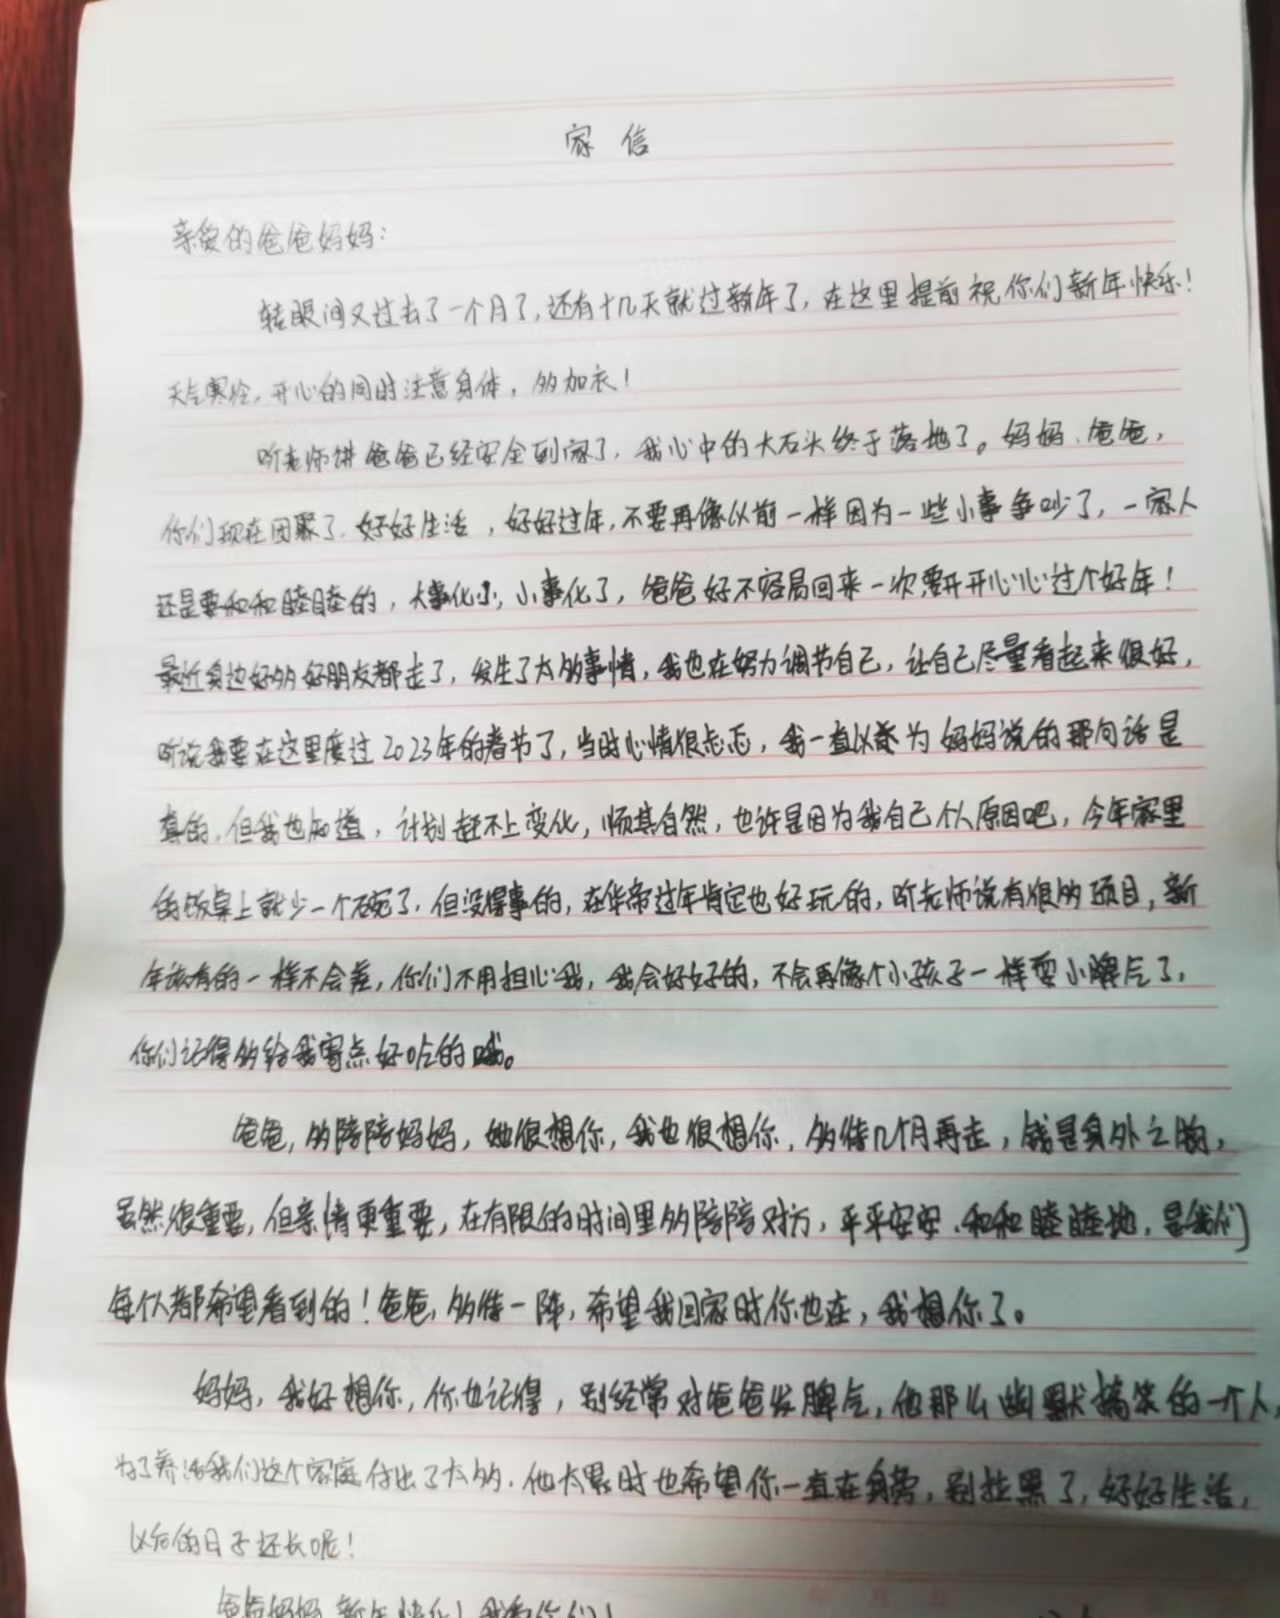 家 信
亲爱的爸爸妈妈：
转眼间又过去了一个月了，还有十几天就过新年了，在这里提前祝你们新年快乐！
天气寒冷，开心的同时注意身体，多加衣！
听老师讲爸爸已经安全到家了，我心中的大石头终于落地了。妈妈、爸爸，
你们现在团聚了，好好生活，好好过年，不要再像以前一样因为一些小事争吵了，一家人
还是要和和睦睦的，大事化小，小事化了，爸爸好不容易回来一次，要开开心心过个好年！
最近身边好多好朋友都走了，发生了太多事情，我也在努力调节自己，让自己尽量看起来很好，
听说我要在这里度过2023年的春节了，当时心情很忐忑，我一直以为妈妈说的那句话是
真的，但我也知道，计划赶不上变化，顺其自然，也许是因为我自己个人原因吧，今年家里
的饭桌上就少一个碗了，但没得事的，在华帝过年肯定也好玩的，听老师说有很多项目，新
年该有的一样不会差，你们不用担心我，我会好好的，不会再像个小孩子一样耍小脾气了，
你们记得多给我寄点好吃的哦。
爸爸，多陪陪妈妈，她很想你，我也很想你，多待几个月再走，钱是身外之物，
虽然很重要，但亲情更重要，在有限的时间里多陪陪对方，平平安安、和和睦睦地，是我们
每个人都希望看到的！爸爸，多待一阵，希望我回家时你也在，我想你了。
妈妈，我好想你，你也记得，别经常对爸爸发脾气，他那么幽默搞笑的一个人，
为了养活我们这个家庭付出了太多，他太累时也希望你一直在身旁，别拉黑了，好好生活，
以后的日子还长呢！
爸爸妈妈，新年快乐！我爱你们！
年 月